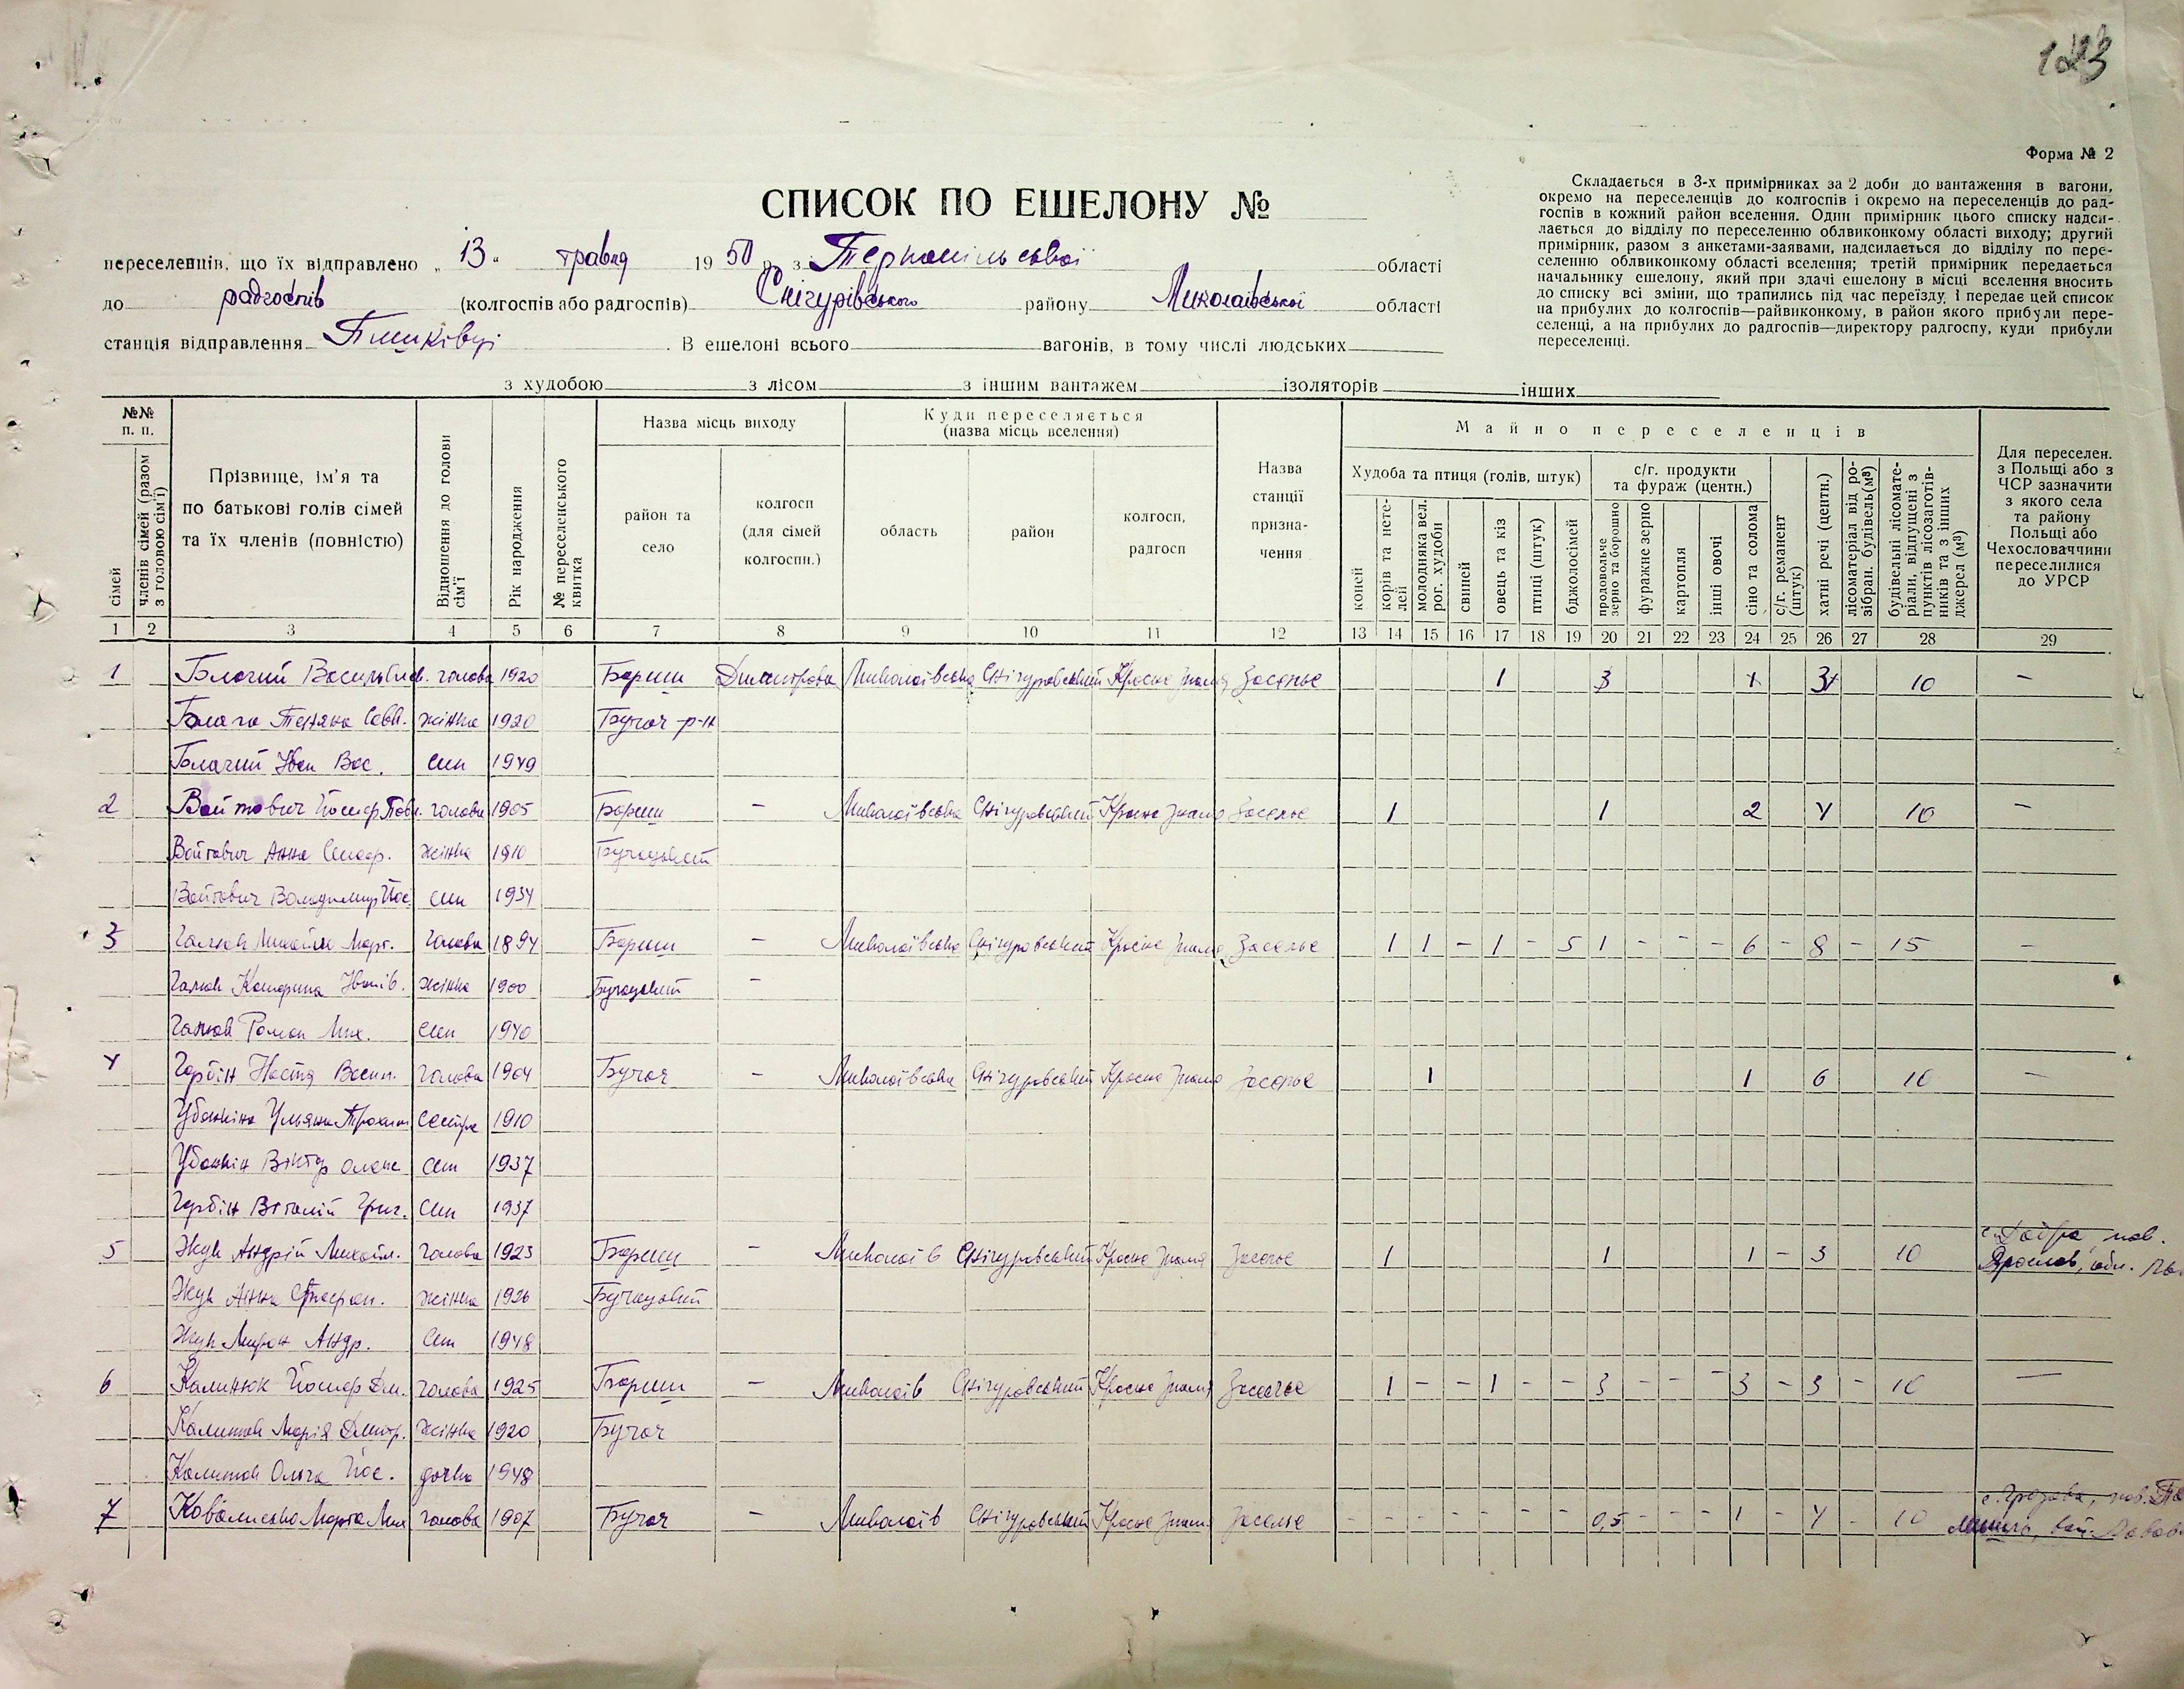 123
Форма № 2
СПИСОК ПО ЕШЕЛОНУ №
Складається в 3-х примірниках за 2 доби до вантаження в вагони,
окремо на переселенців до колгоспів і окремо на переселенців до рад-
госпів в кожний район вселення. Один примірник цього списку надси-
лається до відділу по переселенню облвиконкому області виходу; другий
примірник, разом з анкетами-заявами, надсилається до відділу по пере-
селенню облвиконкому області вселення; третій примірник передається
начальнику ешелону, який при здачі ешелону в місці вселення вносить
до списку всі зміни, що трапились під час переїзду, і передає цей список
на прибулих до колгоспів—райвиконкому, в район якого прибули пере-
селенці, а на прибулих до радгоспів—директору радгоспу, куди прибули
переселенці.
переселенців, що їх відправлено „ 13 " травня 19 50 р. з Тернопільської області
до радгоспів (колгоспів або радгоспів) Снігурівського району Миколаївської області
станція відправлення Пишківці. В ешелоні всього вагонів, в тому числі людських
з худобою з лісом з іншим вантажем ізоляторів інших
№№ п. п.
сімей
членів сімей (разом з головою сім'ї)
Прізвище, ім'я та
по батькові голів сімей
та їх членів (повністю)
Відношення до голови сім'ї
Рік народження
№ переселенського квитка
Назва місць виходу
район та село
колгосп (для сімей колгоспн.)
Куди переселяється
(назва місць вселення)
область
район
колгосп, радгосп
Назва станції призна-чення
Майно переселенців
Худоба та птиця (голів, штук)
коней
корів та нете-лей
молодняка вел. рог. худоби
свиней
овець та кіз
птиці (штук)
бджолосімей
с/г. продукти та фураж (центн.)
продовольче зерно та борошно
фуражне зерно
картопля
інші овочі
сіно та солома
с/г. реманент (штук)
хатні речі (центн.)
лісоматеріал від ро-зібран. будівель (м³)
будівельні лісомате-ріали, відпущені з пунктів лісозаготів-ників та з інших джерел (м³)
Для переселен.
з Польщі або з
ЧСР зазначити
з якого села
та району
Польщі або
Чехословаччини
переселилися
до УРСР
1 2 3 4 5 6 7 8 9 10 11 12 13 14 15 16 17 18 19 20 21 22 23 24 25 26 27 28 29
1 голова 1920 Бариш Миколаївська Снігуровський Красне Знамя Заселье 1 3 10 —
Тетяна жінка 1920 Бучач р-н
Іван Вас. син 1949
2 Войтович Йосиф Пав. голова 1905 Бариш — Миколаївська Снігуровський Красне Знамя Заселье 1 1 2 4 10 —
Войтович Анна жінка 1910 Бучацький
Войтович Володимир Йос. син 1934
3 Михайло голова 1894 Бариш — Миколаївська Снігуровський Красне Знамя Заселье 1 1 - 1 - 5 1 - - - 6 - 8 - 15 —
Катерина Іванів. жінка 1900 Бучацький —
Роман Мих. син 1940
4 Горбін Настя Васил. голова 1904 Бучач — Миколаївська Снігуровський Красне Знамя Заселье 1 1 6 10 —
Уляна сестра 1910
Віктор син 1937
Горбін Віталій Григ. син 1937
5 Жук Андрій Михайл. голова 1923 Бариш — Миколаїв Снігуровський Красне Знамя Заселье 1 1 1 - 3 10 пов.
Жук Анна жінка 1926 Бучацький
Жук Мирон Андр. син 1948
6 Калинюк Йосиф Дм. голова 1925 Бариш — Миколаїв Снігуровський Красне Знамя Заселье 1 - - 1 - - 3 - - - 3 - 3 - 10 —
Калинюк Марія Дмитр. жінка 1920 Бучач
Калинюк Ольга Йос. дочка 1948
7 Марта голова 1907 Бучач — Миколаїв Снігуровський Красне Знам. Заселье - - - - - - - 0,5 - - - 1 - 4 - 10